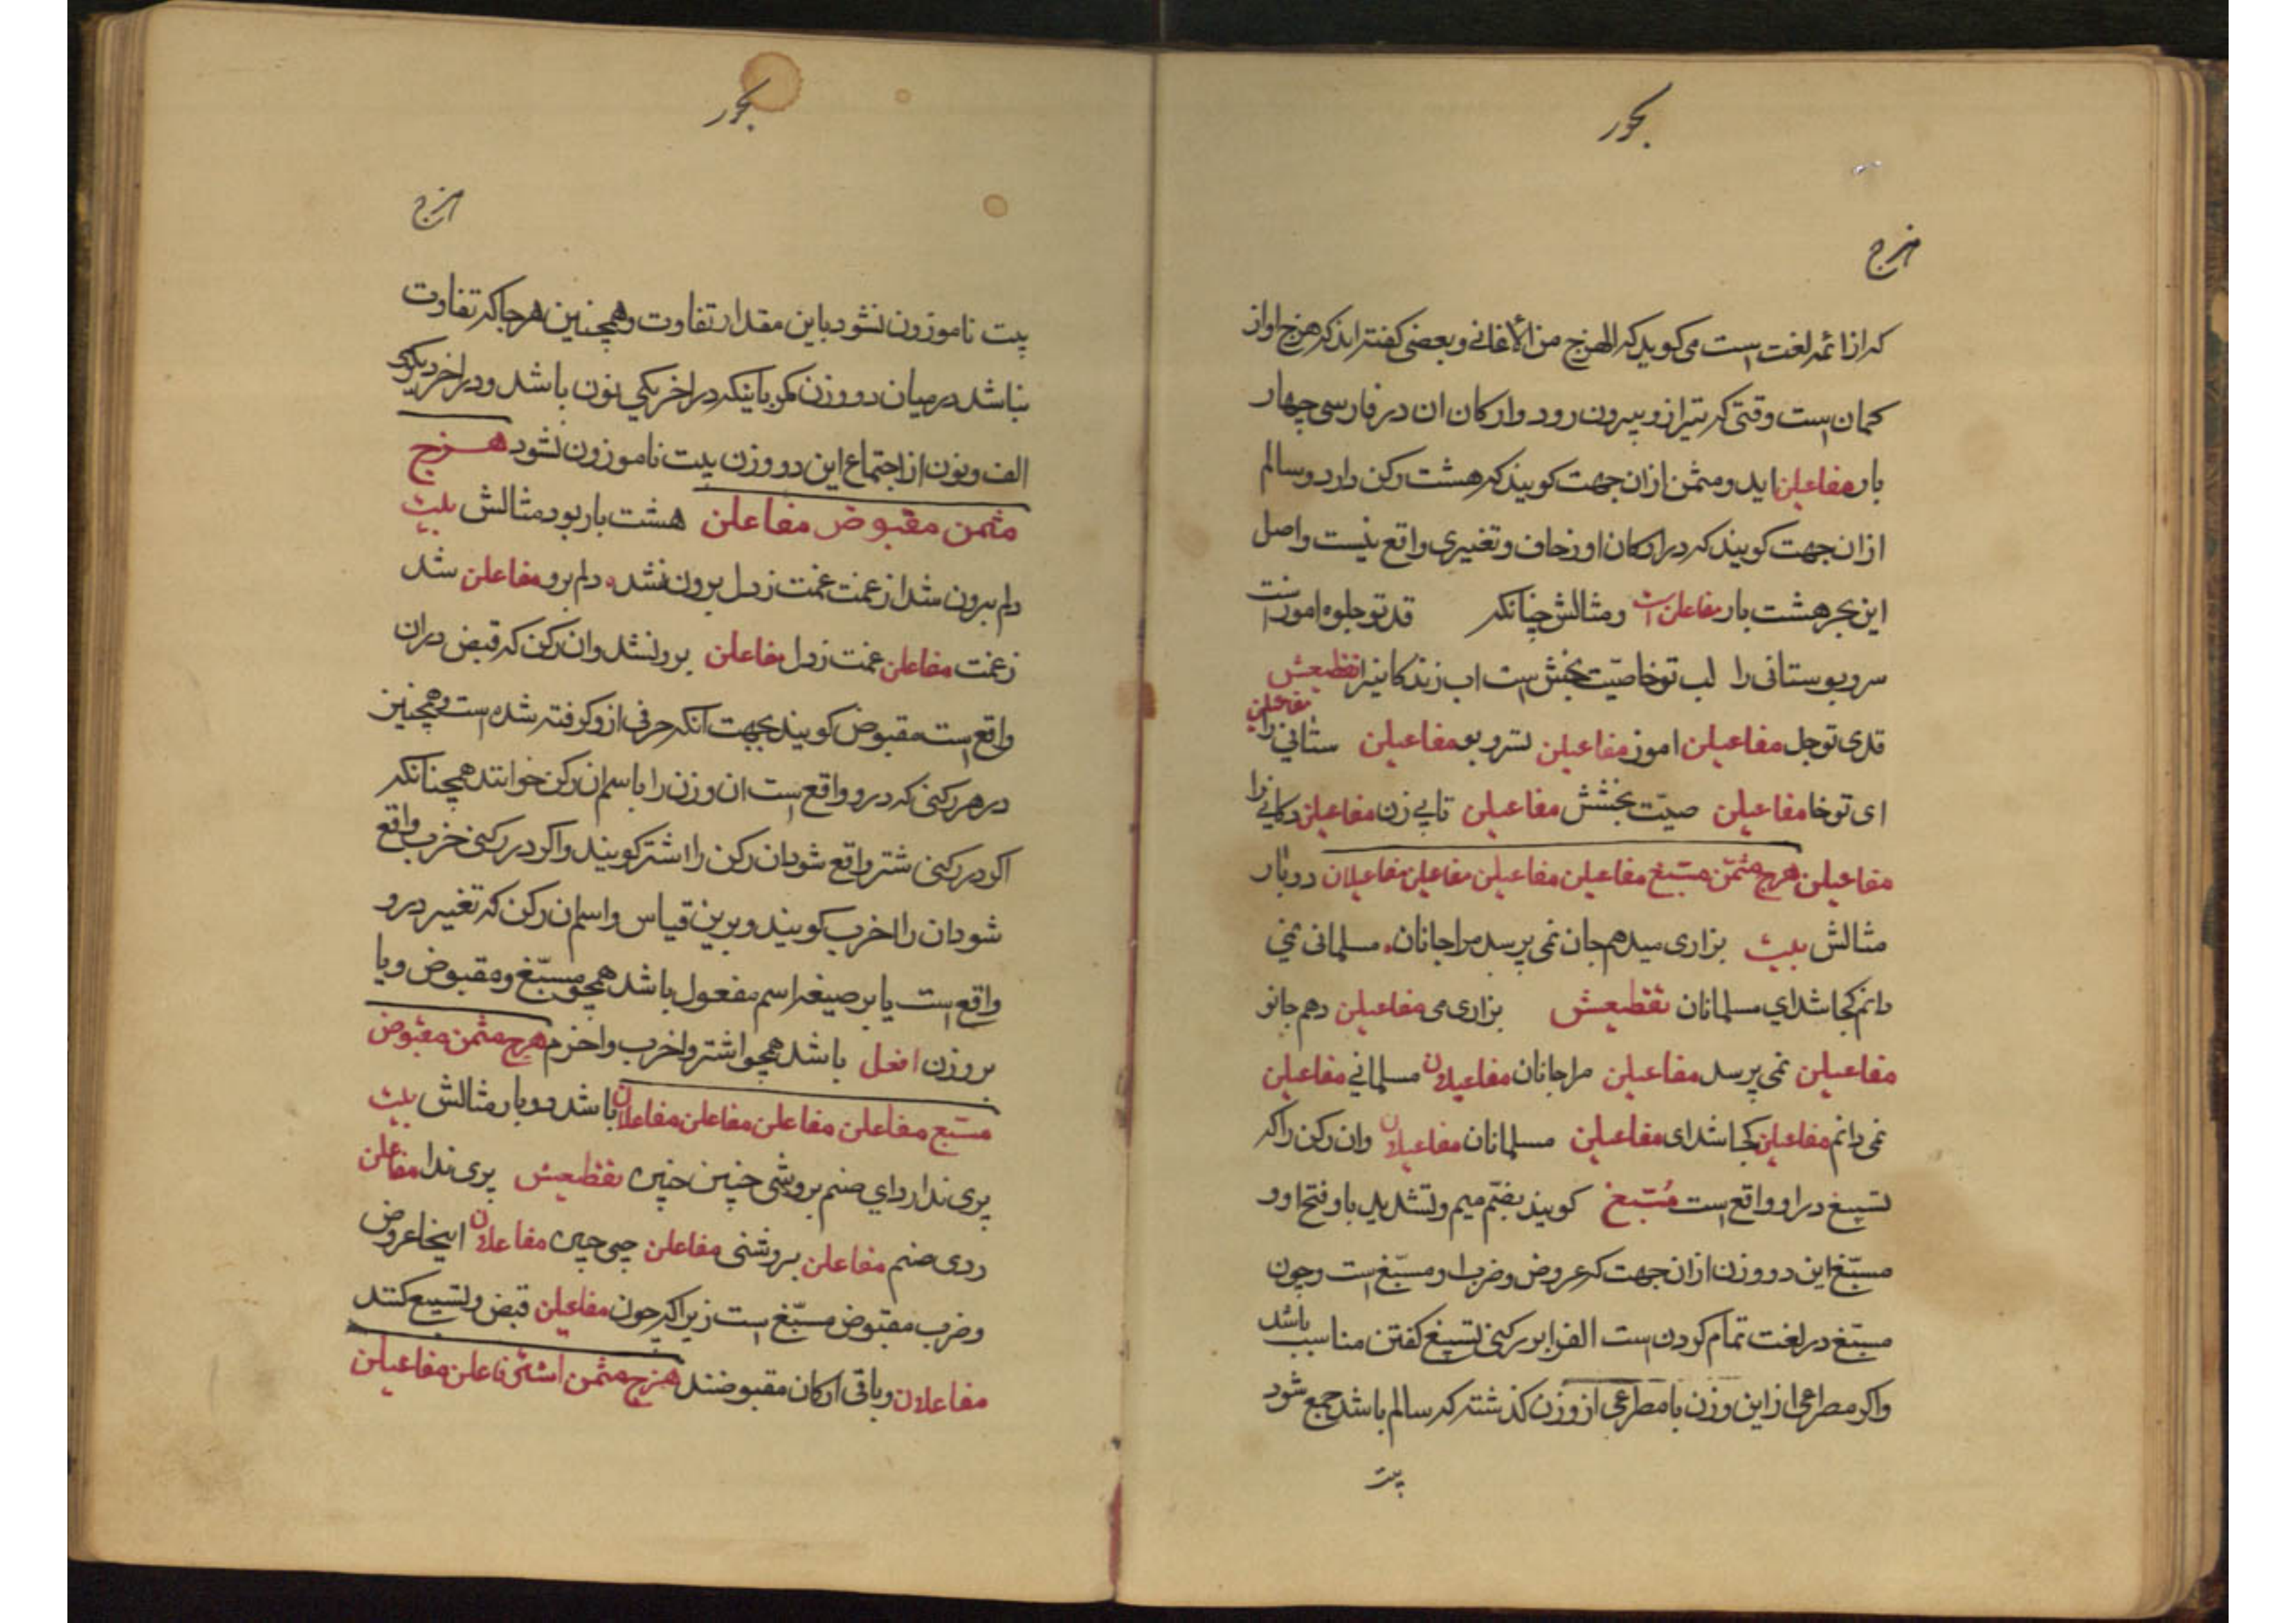 بحور
هزج
که از ائمه لغت است می کوید که الهزج من الأغانی و بعضی کفته اند که هزج اواز
کمان است وقتی که تیر ازو بیرون رود و ارکان ان در فارسی چهار
بار مفاعیلن اید و مثمن ازان جهت کویند که هشت رکن دارد و سالم
ازان جهت کویند که در ارکان او زحاف و تغییری واقع نیست و اصل
این بحر هشت بار مفاعلن است و مثالش چنانکه قد تو جلوه اموزست
سرو بوستانی را لب تو خاصیّت بخش است اب زندکانیرا تقطیعش
قدی تو جل مفاعیلن اموز مفاعیلن سرو بو مفاعیلن ستانی را مفاعیلن
ای تو خا مفاعیلن صیّت بخشش مفاعیلن تابی زن مفاعیلن دکانی را
مفاعیلن هزج مثمّن مسبّغ مفاعیلن مفاعیلن مفاعیلن مفاعیلان دو بار
مثالش بیت بزاری میدهم جان نمی پرسد مرا جانان مسلمانی نمی
دانم کجا شد ای مسلمانان تقطیعش بزاری می مفاعیلن دهم جانو
مفاعیلن نمی پرسد مفاعیلن مرا جانان مفاعیلان مسلمانی مفاعیلن
نمی دانم مفاعیلن کجا شد ای مفاعیلن مسلمانان مفاعیلان وان رکن را که
تسبیغ در او واقع است مُسبّغ کویند بضمّ میم و تشدید با و فتح او و
مسبّغ این دو وزن ازان جهت که عروض و ضرب او مسبّغ است و چون
مسبّغ در لغت تمام کردن است الف را بر رکنی تسبیغ کفتن مناسب باشد
واکر مصراعی از این وزن با مصراعی از وزن کذشته که سالم باشد جمع شود
بیت
بحور
هزج
بیت ناموزون نشود باین مقدار تفاوت و همچنین هر جا که تفاوت
نباشد در میان دو وزن مکر باینکه در اخر یکی نون باشد و در اخر دیکری
الف و نون از اجتماع این دو وزن بیت ناموزون نشود هزج
مثمن مقبوض مفاعلن هشت بار بود مثالش بیت
دلم برون شد از غمت غمت ز دل برون نشد دلم برو مفاعلن شد
زغمت مفاعلن غمت ز دل مفاعلن برونشد وان رکن که قبض دران
واقع است مقبوض کویند بجهت آنکه حرفی ازو کرفته شده است و همچنین
در هر رکنی که درو واقع است ان وزن را باسم ان رکن خوانند همچنانکه
اکر در رکنی شتر واقع شود ان رکن را اشتر کویند واکر در رکنی خرب واقع
شود ان را اخرب کویند و برین قیاس و اسم ان رکن که تغییر درو
واقع است یا بر صیغه اسم مفعول باشد همچو مسبّغ و مقبوض و یا
بر وزن افعل باشد همچو اشتر و اخرب و اخرم هزج مثمن مقبوض
مسبّغ مفاعلن مفاعلن مفاعلن مفاعلان باشد دو بار مثالش بیت
پری ندارد ای صنم بروشی چنین جبین تقطیعش پری ندا مفاعلن
ردی صنم مفاعلن بروشنی مفاعلن چنی جبین مفاعلان اینجا عروض
و ضرب مقبوض مسبّغ است زیرا که چون مفاعیلن قبض و تسبیغ کنند
مفاعلان و باقی ارکان مقبوضند هزج مثمن اشتر فاعلن مفاعیلن